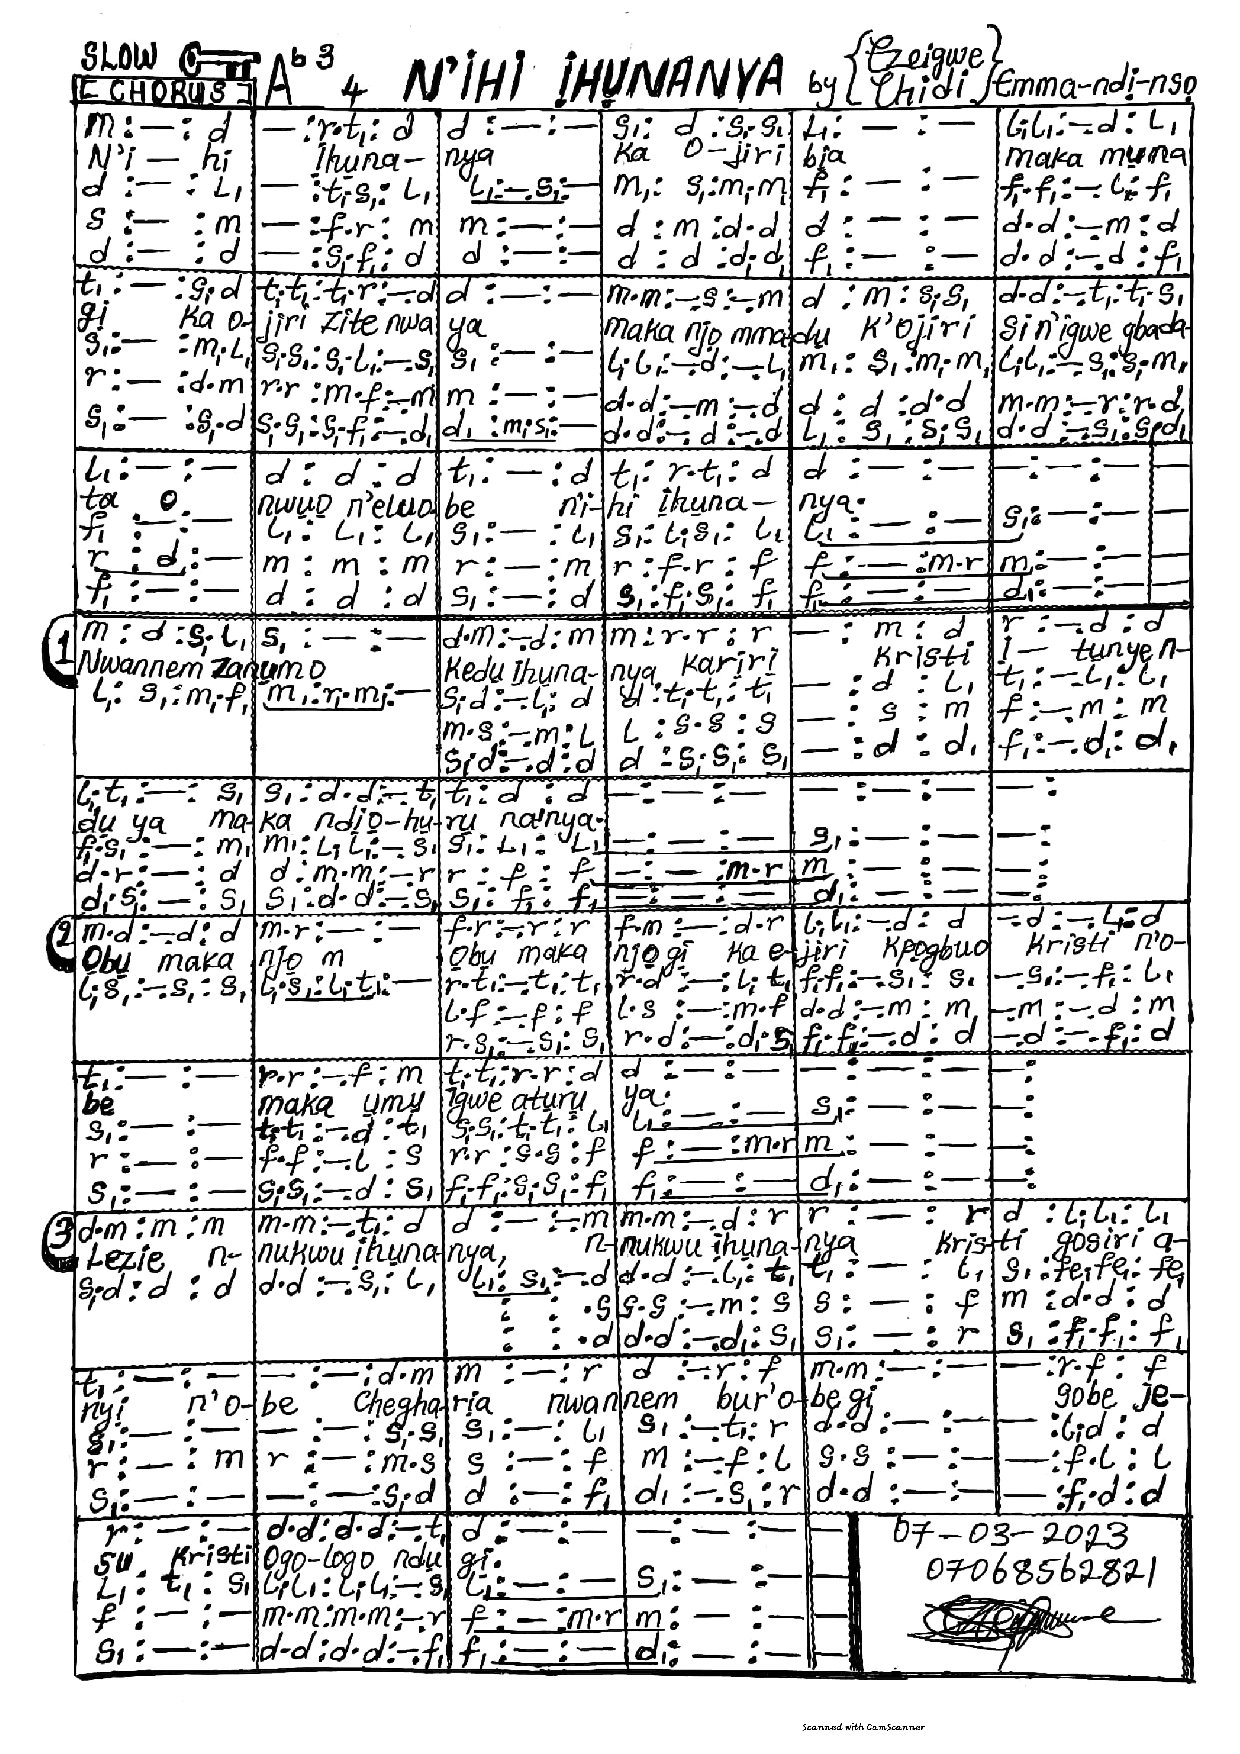 SLOW A♭ 3 4 N'ỊHỊ ỊHỤNANYA by {Ezeigwe Chidi} Emma-ndi-nso
[CHORUS]
m :— : d | — :r.t₁: d | d :—:— | s₁: d :s₁.s₁ | L₁: — : — | L₁.L₁:—.d: L₁
N'i — hi ịhụna— nya ka O-jiri bịa maka mụna
d :— : L₁ | — :t₁.s₁: L₁ | L₁:—.s₁:— | m₁: s₁:m₁.m₁ | f₁: — : — | f₁.f₁:—.L₁: f₁
s :— : m | — :f.r: m | m :—:— | d : m :d.d | d : — : — | d.d:—.m : d
d :— : d | — :s₁.f₁: d | d :—:— | d : d :d.d | f₁: — : — | d.d:—.d : f₁
t₁:— :s₁.d | t₁.t₁:t₁.r:—.d | d :—:— | m.m:—.s:—.m | d : m : s₁.s₁ | d.d:—.t₁:t₁.s₁
gị ka o-jiri zite nwa ya maka njọ mmadụ K'ojiri si n'igwe gbada-
s₁:— :m₁.L₁ | s₁.s₁:s₁.L₁:—.s₁ | s₁:—:— | L₁.L₁:—.d:—.L₁ | m₁: s₁:m₁.m₁ | L₁.L₁:—.s₁:s₁.m₁
r :— :d.m | r.r :m.f:—.m | m :—:— | d.d:—.m:—.d | d : d :d.d | m.m:—.r:r.d
s₁:— :s₁.d | s₁.s₁:s₁.f₁:—.d₁ | d₁:m₁.s₁:— | d.d:—.d:—.d | L₁: s₁:s₁.s₁ | d.d:—.s₁:s₁.d₁
L₁:—:— | d : d : d | t₁:—: d | t₁: r.t₁: d | d :—:— | —:—:—
ta o nwụọ n'elu obe n'i-hi ihụna— nya.
f₁:—:— | L₁: L₁: L₁ | s₁:—: L₁ | s₁: L₁.s₁: L₁ | L₁:—:— | s₁:—:—
r : d :— | m : m : m | r :—: m | r :f.r: f | f :—:m.r | m:—:—
f₁:—:— | d : d : d | s₁:—: d | s₁:f₁.s₁: f₁ | f₁:—:— | d₁:—:—
1 m : d :s₁.L₁ | s₁:—:— | d.m:—.d: m | m : r.r : r | — : m : d | r :—.d : d
Nwannem zanụmọ Kedu Ihụna- nya kariri Kristi I— tunyen-
L₁: s₁:m₁.f₁ | m₁:r₁.m₁:— | s₁.d:—.L₁: d | d :t₁.t₁: t₁ | — : d : L₁ | t₁:—.L₁: L₁
m.s:—.m: L | L : s.s : s | — : s : m | f :—.m : m
s₁.d:—.d:d | d :s₁.s₁: s₁ | — : d : d₁ | f₁:—.d₁: d₁
L₁.t₁:—: s₁ | s₁:d.d:—.t₁ | t₁: d : d | —:—:— | —:—:— | —:
dụ ya ma-ka ndịọ-hụ-rụ na'nya.
f₁.s₁:—: m₁ | m₁:L₁.L₁:—.s₁ | s₁: L₁: L₁ | —:—:— | s₁:—:— | —:
d.r:—: d | d :m.m:—.r | r : f : f | —:—:m.r | m:—:— | —:
d.s₁:—: s₁ | s₁:d.d:—.s₁ | s₁: f₁: f₁ | —:—:— | d₁:—:— | —:
2 m.d:—.d: d | m.r:—:— | f.r:—.r: r | f.m :—:d.r | L₁.L₁:—.d: d | —.d:—.L₁:d
Obu maka njọ m Obu maka njọ gị ka e-jiri Kpogbuo Kristi n'o-
L₁.s₁:—.s₁: s₁ | L₁.s₁:L₁.t₁:— | r.t₁:—.t₁:t₁ | r.d :—:L₁.t₁ | f₁.f₁:—.s₁: s₁ | —.s₁:—.f₁: L₁
L.f:—.f: f | L.s :—:m.f | d.d:—.m: m | —.m:—.d :m
r.s₁:—.s₁: s₁ | r.d:—:d.s₁ | f₁.f₁:—.d: d | —.d:—.f₁: d
t₁:—:— | r.r:—.f: m | t₁.t₁:r.r:d | d :—:— | —:—:— | —:
be maka ụmụ Igwe aturu ya.
s₁:—:— | t₁.t₁:—.d: t₁ | s₁.s₁:t₁.t₁: L₁ | L₁:—:— | s₁:—:— | —:
r :—:— | f.f:—.L : s | r.r :s.s: f | f :—:m.r | m:—:— | —:
s₁:—:— | s₁.s₁:—.d: s₁ | f₁.f₁:s₁.s₁:f₁ | f₁:—:— | d₁:—:— | —:
3 d.m : m : m | m.m:—.t₁: d | d :—:—.m | m.m:—.d: r | r :—: r | d :L₁.L₁: L₁
Lezie n- nukwu ihụna-nya, n-nukwu ihụna-nya Kris-ti gosiri a-
s₁.d: d : d | d.d:—.s₁: L₁ | L₁: s₁:—.d | d.d:—.L₁: t₁ | t₁:—: L₁ | s₁:fe₁.fe₁: fe₁
: : .s | s.s:—.m: s | s :—: f | m :d.d: d
: : .d | d.d:—.d₁: s₁ | s₁:—: r | s₁:f₁.f₁: f₁
t₁:—:— | —:—:d.m | m :—: r | d :—.r: f | m.m:—:— | —:r.f: f
nyị n'o-be Chegha-rịa nwannem bur'o-be gị gobe je-
s₁:—:— | —:—:s₁.s₁ | s₁:—: L₁ | s₁:—.t₁: r | d.d:—:— | :L₁.d: d
r :—: m | r :—:m.s | s :—: f | m :—.f: L | s.s:—:— | —:f.L: L
s₁:—:— | —:—:s₁.d | d :—: f₁ | d₁:—.s₁: r | d.d:—:— | :f₁.d: d
r :—:— | d.d:d.d:—.t₁ | d :—:— | —:—:— | 07-03-2023
su Kristi Ogo-logo ndụ gị. 07068562821
L₁: t₁: s₁ | L₁.L₁:L₁.L₁:—.s₁ | L₁:—:— | s₁:—:—
f :—:— | m.m:m.m:—.r | f :—:m.r | m:—:—
s₁:—:— | d.d:d.d:—.f₁ | f₁:—:— | d₁:—:—
Scanned with CamScanner